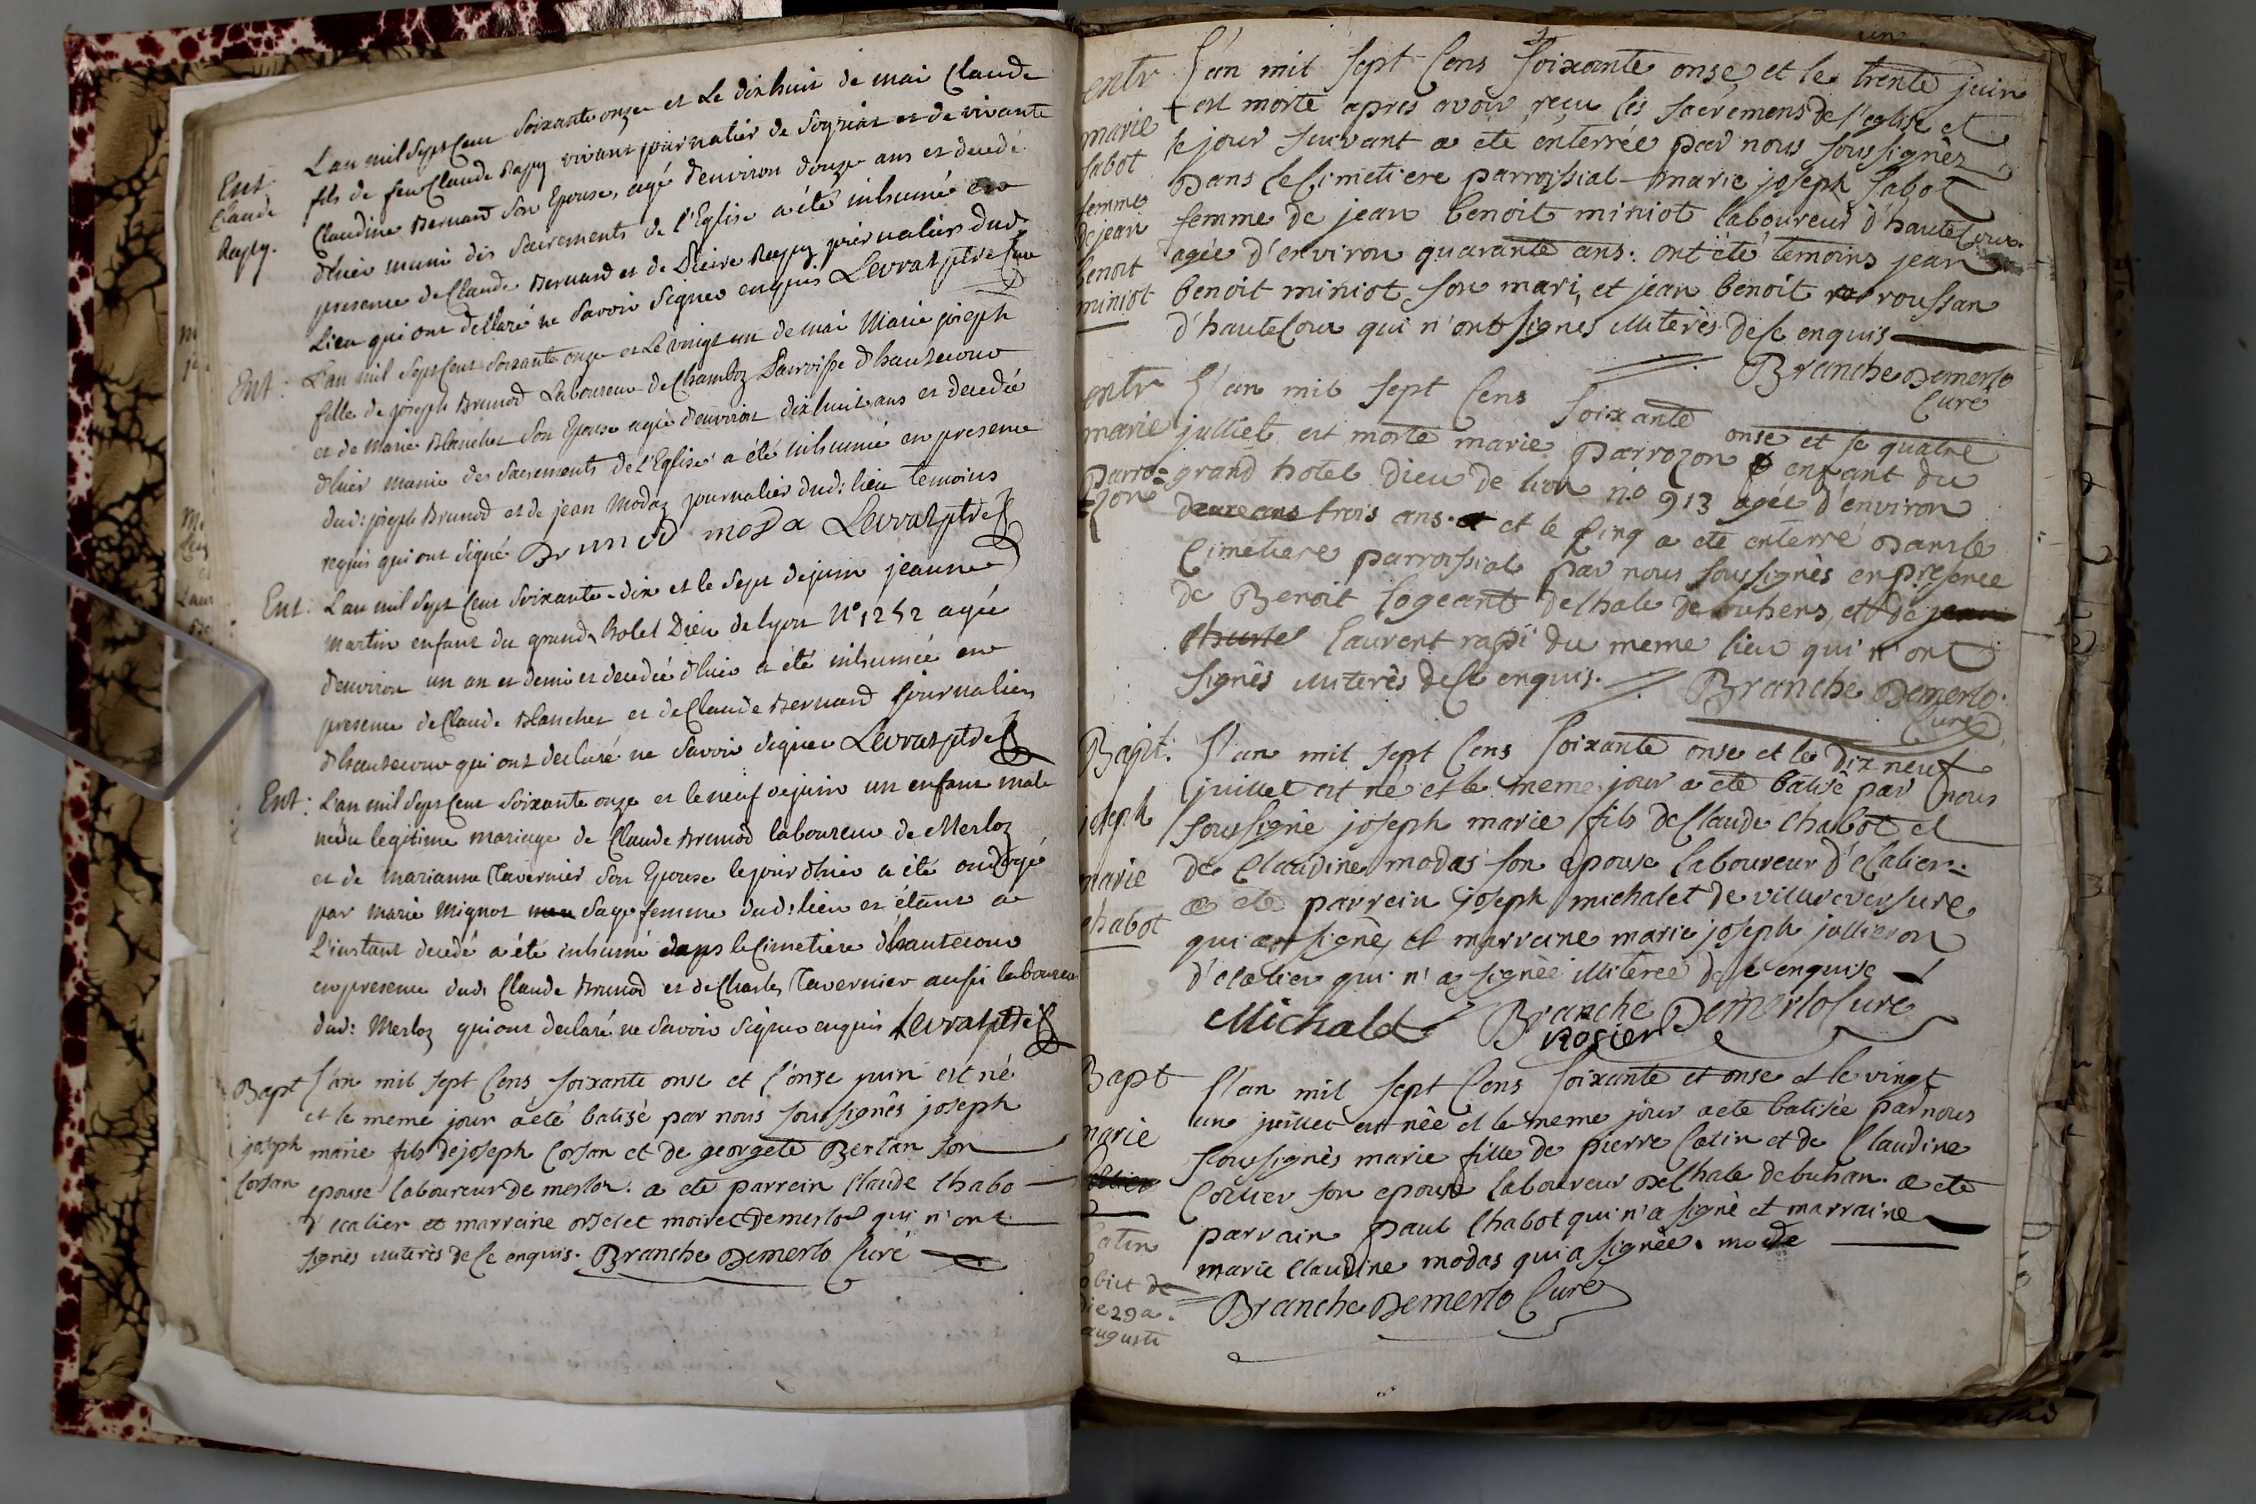 L'an mil sept cent soixante onze et Le dix huit de mai Claude
Ent: Claude Rapy.
fils de feu Claude Rapy vivant journalier de Soyriat et de vivante
Claudine Bernard Son Epouse, agé d'environ douze ans et decedé
d'hier muni des sacrements de l'Eglise a été inhumé en
presence de Claude Bernard et de Pierre Rapy journaliers dud.
Lieu qui ont declaré ne savoir signer enquis Levrat ptre
Ent: L'an mil sept cent soixante onze et Le vingt un de mai Marie joseph
fille de joseph Brunod Laboureur de Chamboz Parroisse d'hautecour
et de Marie Blanchet Son Epouse agée d'environ dix huit ans et decedée
d'hier munie des sacrements de l'Eglise a été inhumée en presence
dud: joseph Brunod et de jean Modaz journalier dud: lieu temoins
requis qui ont signé. Brunod moda Levrat ptre
Ent: L'an mil sept cent soixante-dix et le sept de juin jeanne
Martin enfant du grand hotel Dieu de lyon N° 1252 agée
d'environ un an et demi et decedée d'hier a été inhumée en
presence de Claude Blanchet et de Claude Bernard journaliers
d'hautecour qui ont declaré ne savoir signer Levrat ptre
Ent: L'an mil sept cent soixante onze et le neuf de juin un enfant male
né du legitime mariage de Claude Brunod laboureur de Merloz
et de marianne Tavernier son Epouse le jour d'hier a été ondoyé
par marie Mignot sage femme dud: lieu et étant a
L'instant decedé a été inhumé dans le Cimetiere d'hautecour
en presence dud. Claude Brunod et de Charles Tavernier aussi laboureur
dud: Merloz qui ont declaré ne savoir signer enquis Levrat ptre
Bapt L'an mil sept cens soixante onse et l'onze juin est né
et le meme jour a été batisé par nous soussignés joseph
joseph marie fils de joseph Corsan et de georgete Bertan son
Corsan epouse laboureur de merlo. a ete parrein Claude Chabo
d'ecalier et marreine moiret de merlo qui n'ont
signés illiterés de ce enquis. Branche Demerlo Curé
entr L'an mil sept cens soixante onse, et le trente juin
+ est morte apres avoir reçu les sacremens de l'eglise et
marie le jour suivant a eté enterrée par nous soussignés
fabot dans le Cimetiere parroissial marie joseph fabot
femme femme de jean benoit miniot laboureur d'hautecour.
de jean agée d'environ quarante ans. ont eté temoins jean
benoit benoit miniot son mari, et jean benoit roussan
miniot d'hautecour qui n'ont signés illiterés de ce enquis
Branche Demerlo
Curé
entr L'an mil sept cens soixante onse et le quatre
marie julliet est morte marie parrozon enfant du
parro= grand hotel Dieu de lion n.o 913 agée d'environ
zon deux ans trois ans. et le cinq a eté enterré dans le
Cimetiere parroissial par nous soussignés en presence
de Benoit logeant de Chale de buhens, et de jean
laurent rapi du meme lieu qui n'ont
signés illiterés de ce enquis. Branche Demerlo.
Curé
Bapt. L'an mil sept cens soixante onse et le dix neuf
juillet est né et le meme jour a eté batisé par nous
joseph soussigné joseph marie fils de Claude Chabot et
marie de Claudine modas son epouse laboureur d'ecalier.
a eté parrein joseph michalet de villereversure
chabot qui a signé, et marreine marie joseph jullieron
d'ecalier qui n'a signée illiteree de ce enquise
Michalet Branche Demerlo Curé
Rosier
Bapt L'an mil sept cens soixante et onse et le vingt
un juillet est née et le meme jour a eté batisée par nous
marie soussignés marie fille de pierre Catin et de Claudine
Cottier son epouse laboureur de Chale de buhan. a eté
Catin parrain paul Chabot qui n'a signé et marraine
obiit de marie Claudine modas qui a signée. moda
die 29a. Branche Demerlo Curé
augusti